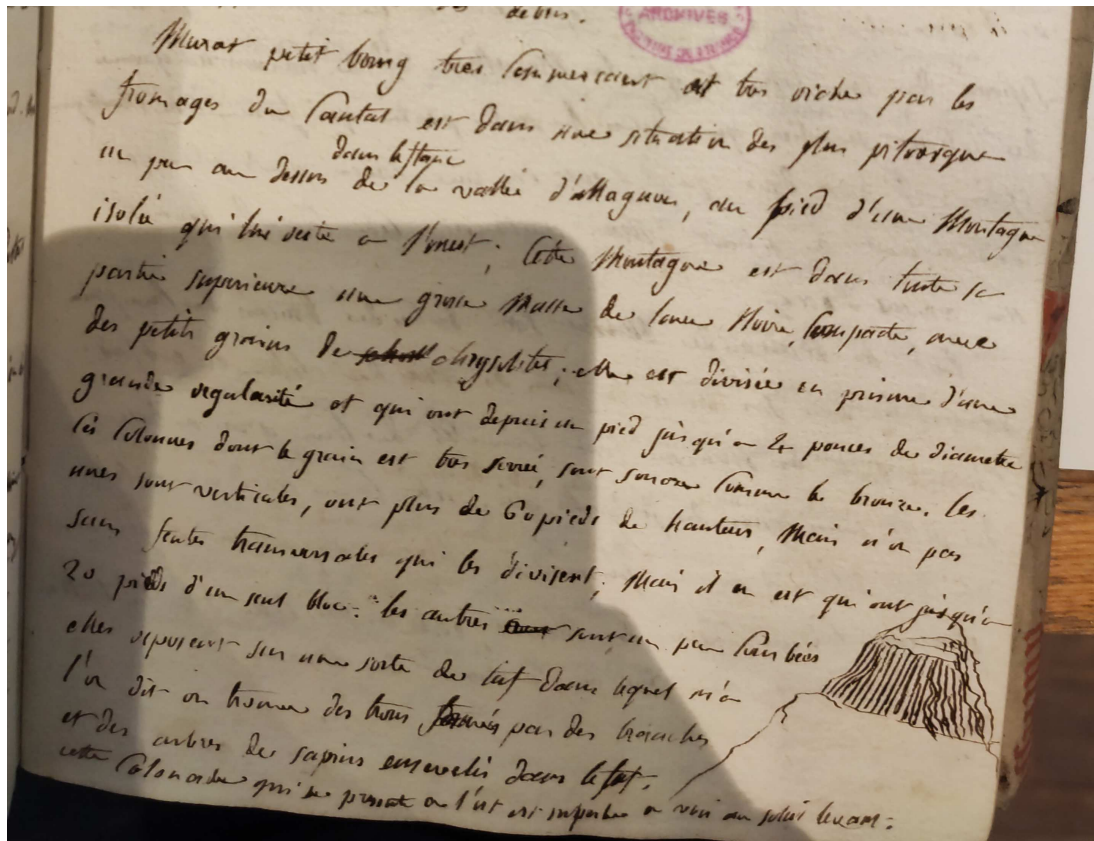 debris.
ARCHIVES
Murat petit bourg tres Commercant et tres riche par les
fromages du Cantal est dans une situation des plus pitoresque
dans le tape
un peu au dessus de la vallée d'allagnon, au pied d'une Montagne
isolée qui lui reste a l'ouest; Cette Montagne est dans toute sa
partie superieure une grosse Masse de lave Noire, Compacte, avec
des petits grains de chrysolites; elle est divisée en prisme d'une
grande regularité et qui ont depuis un pied jusqu'a 24 pouces de diametre
Ces Colonnes dont le grain est tres serré, sont sonore Comme le bronze. les
unes sont verticales, ont plus de 60 pieds de hauteur, Mais n'on pas
sans fentes transversales qui les divisent; Mais il en est qui ont jusqu'a
20 pieds d'un seul bloc. les autres sont un peu Courbées
elles reposent sur une sorte de tuf dans lequel m'a
l'on dit on trouve des trous formés par des branches
et des arbres de sapins ensevelis dans le tuf.
cette Colonade qui se presente a l'est est superbe a voir au soleil levant.